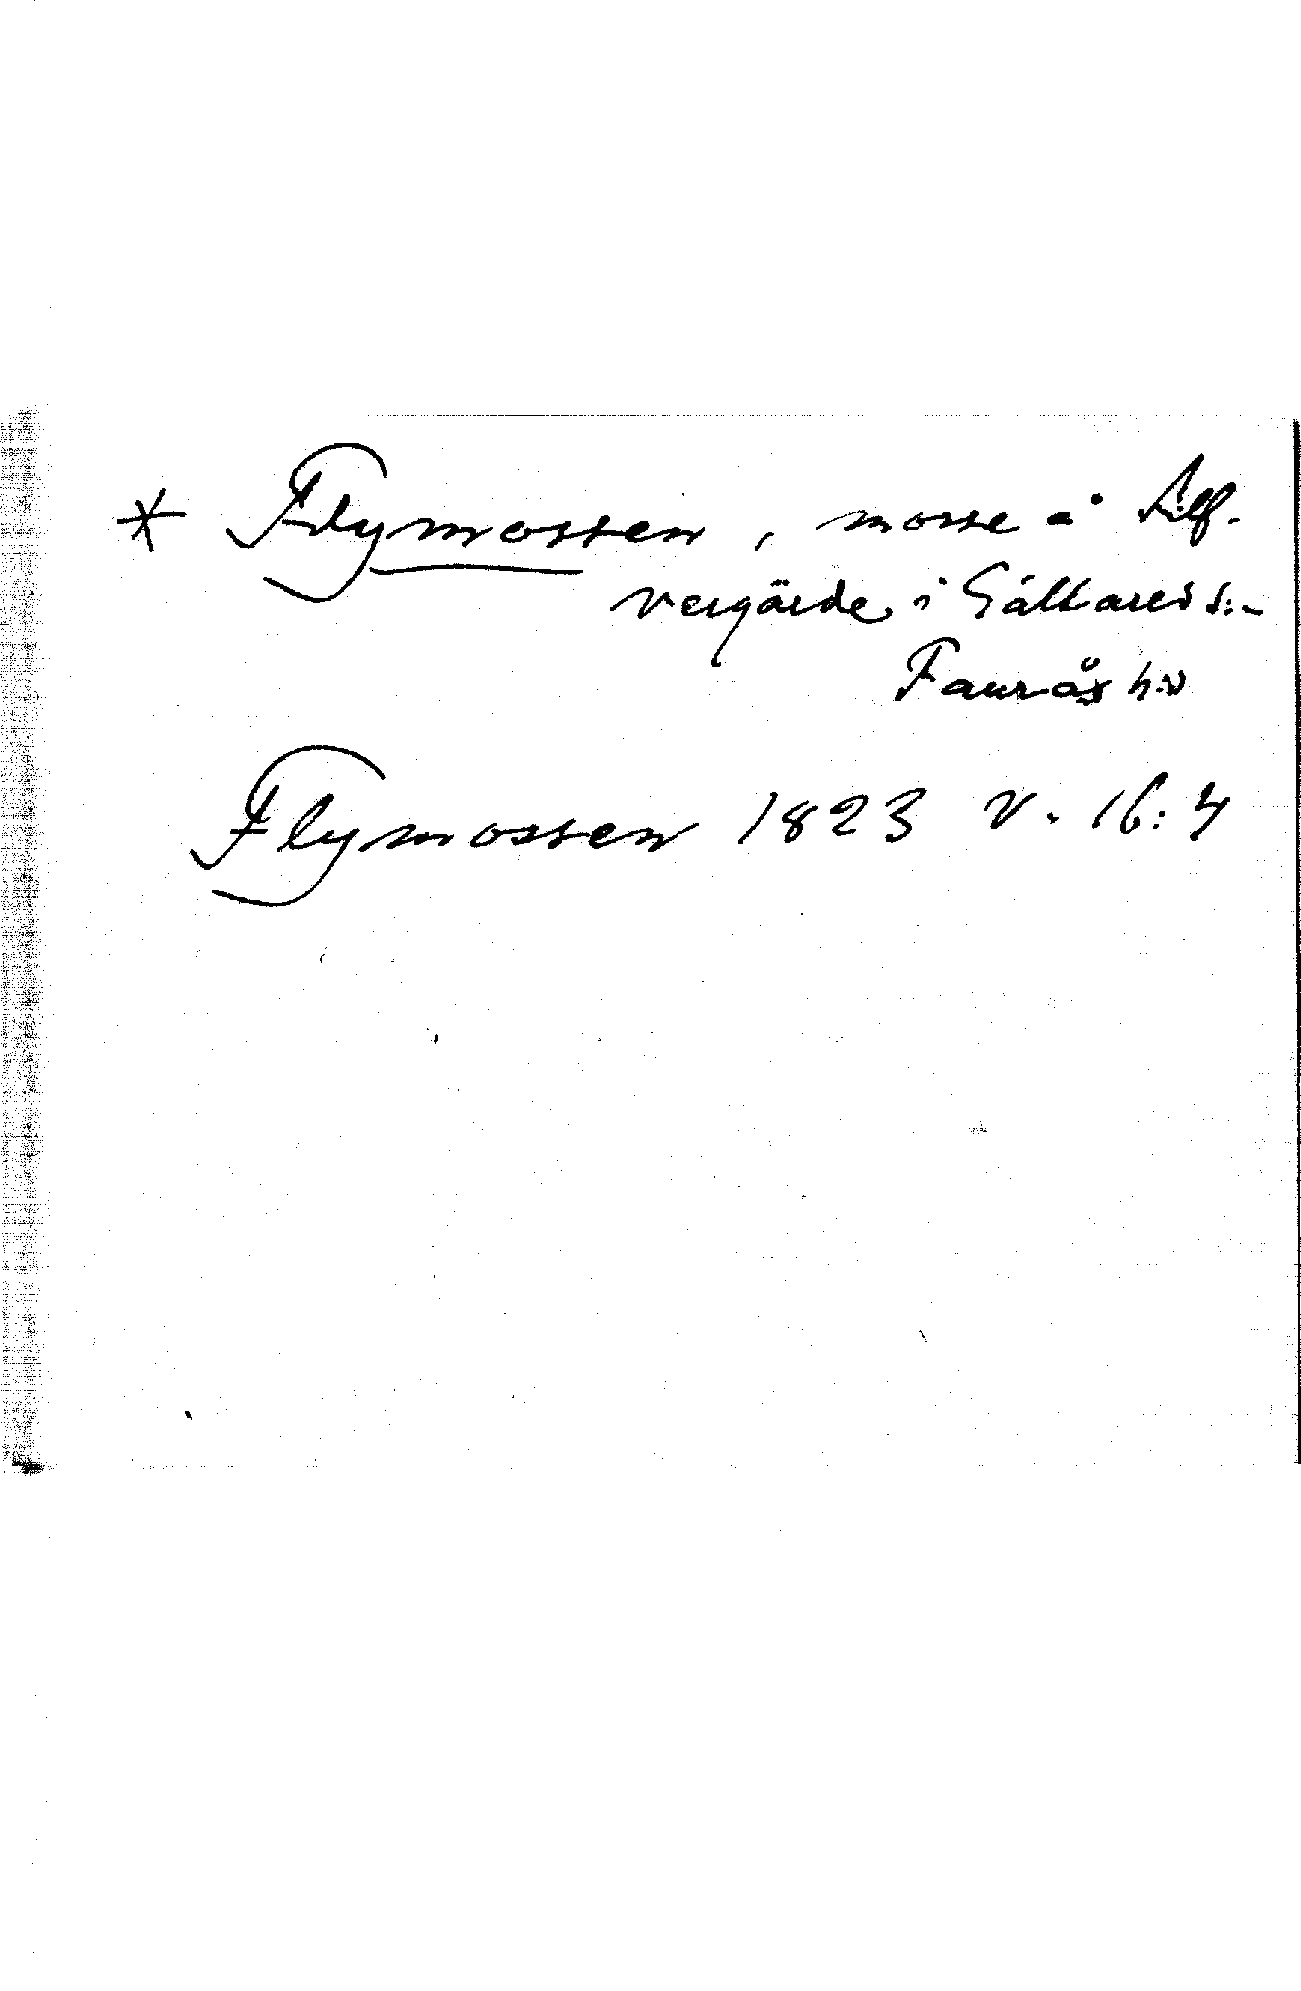 * Flymossen, mosse å Älf-
vergärde i Gällareds s:n
Faurås h:d
Flymossen 1823 V. 16:4